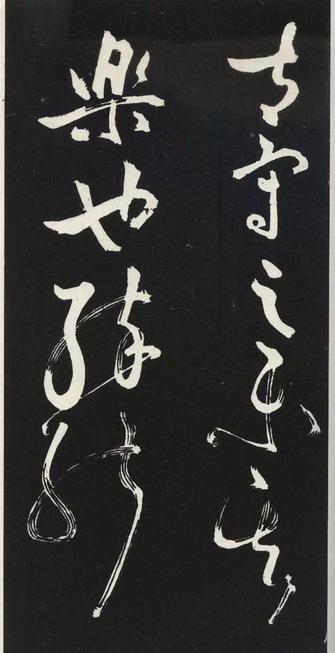 太守之樂其
樂也醉能